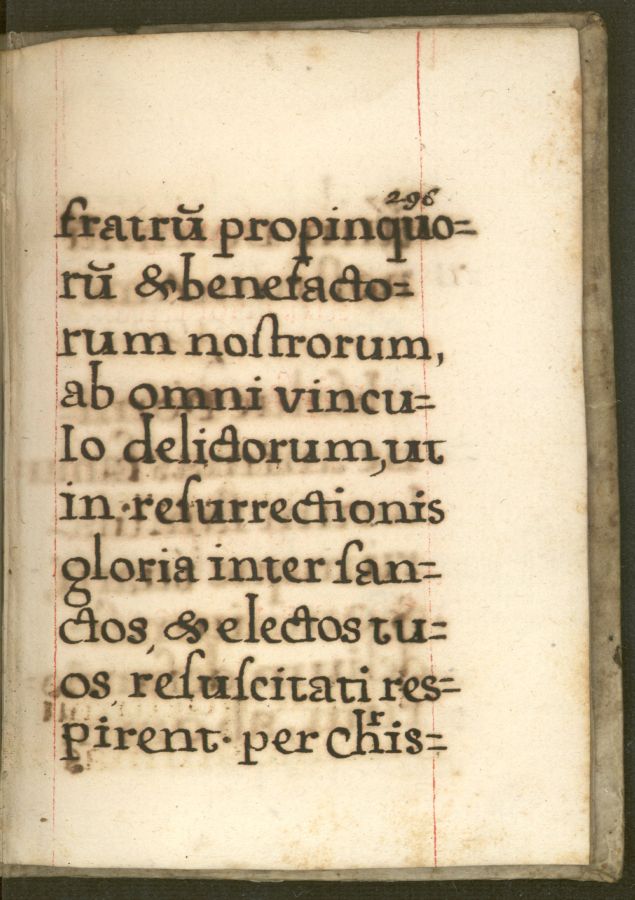 296
fratrũ propinquo=
rũ & benefacto=
rum noſtrorum,
ab omni vincu=
lo delictorum, ut
in reſurrectionis
gloria inter ſan=
ctos, & electos tu=
os reſuſcitati res=
pirent. per chr̃is=